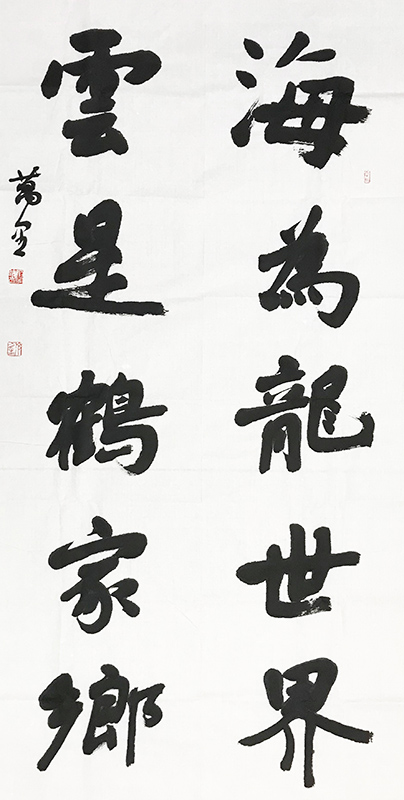 海為龍世界
雲是鶴家鄉
萬金